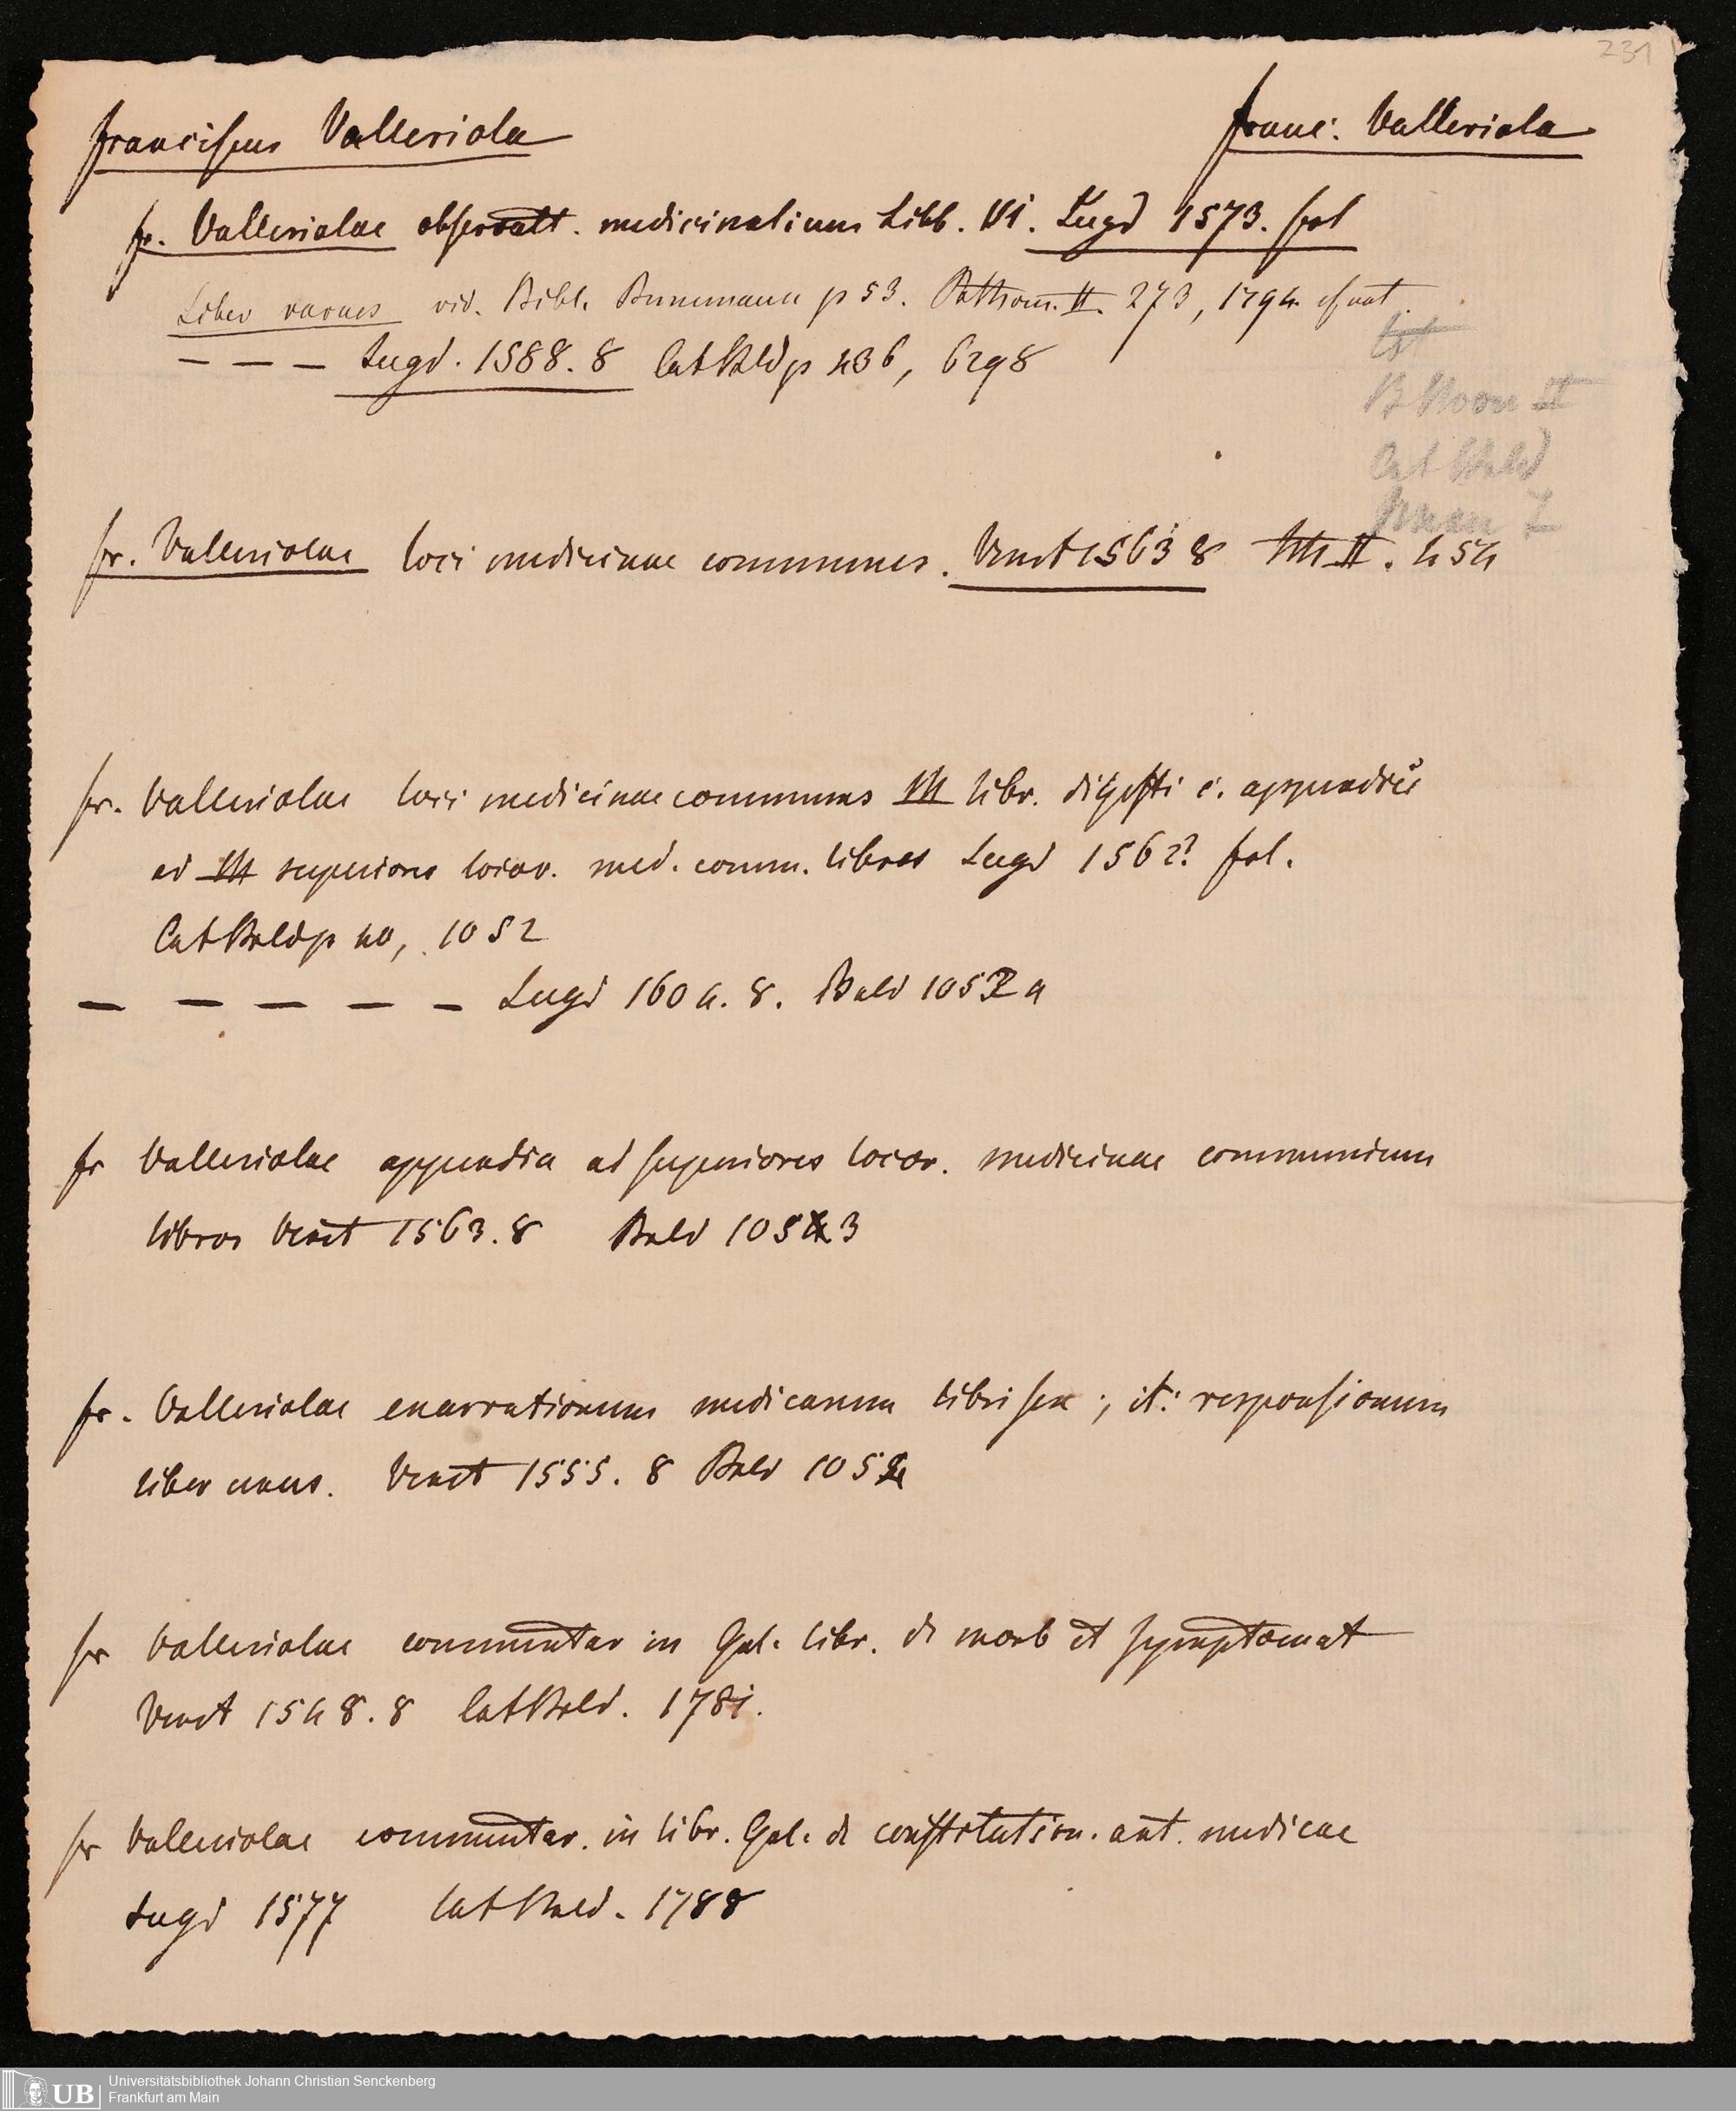 231
Franciscus Valleriola
Franc. Valleriola
Fr. Valleriolae observatt. medicinalium Libb. VI. Lugd 1573. fol
Liber rarus vid. Bibl. p 53. II. 273, 1794
– – – Lugd. 1588. 8 Cat Bald p 436, 6298
II
Cat Bald
Fr. Valleriolae loci medicinae communes. Venet 1563 8 II. 454
Fr. Valleriolae loci medicinae communes III libr. digesti c. appendice
ad III superiores locor. med. comm. libros Lugd 1562? fol.
Cat Bald p 40, 1052
– – – – – Lugd 1604. 8. Bald 1052 a
Fr Valleriolae appendix ad superiores locor. medicinae communium
libros Venet 1563. 8 Bald 1053
Fr. Valleriolae enarrationum medicarum libri sex; it. responsionum
liber unus. Venet 1555. 8 Bald 105
Fr Valleriolae commentar in Gal. libr. de morb et symptomat
Venet 1548. 8 Cat Bald. 1781.
Fr Valleriolae commentar. in libr. Gal. de constitution. art. medicae
Lugd 1577 Cat Bald. 1788
UB
Universitätsbibliothek Johann Christian Senckenberg
Frankfurt am Main